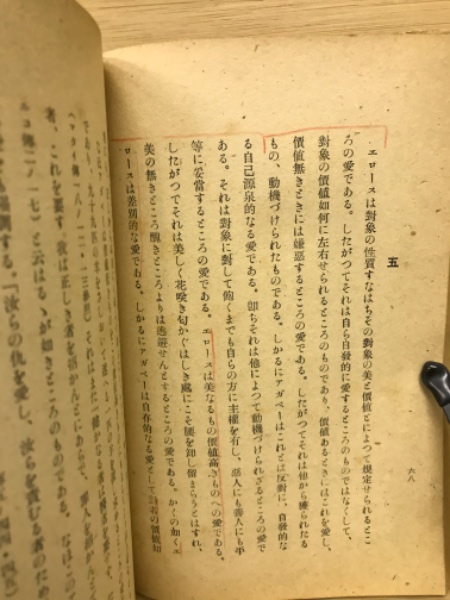 五
エロースは對象の性質すなはちその對象の美と價値とによつて規定せられるとこ
ろの愛である。したがつてそれは自ら自發的に愛するところのものではなくして、
對象の價値如何に左右せられるところのものであり、價値あるときにはこれを愛し、
價値無きときには嫌惡するところの愛である。したがつてそれは他から捲られたる
もの、動機づけられたものである。しかるにアガペーはこれとは反對に、自發的な
る自己源泉的なる愛である。卽ちそれは他によつて動機づけられざるところの愛で
ある。それは對象に對して飽くまでも自らの方に主權を有し、惡人にも善人にも平
等に妥當するところの愛である。エロースは美なるもの價値高きものへの愛である。
したがつてそれは美しく花咲き匂かぐはしき處にこそ腰を卸し留まらうとはすれ、
美の無きところ醜きところよりは逃避せんとするところの愛である。かくの如くエ
ロースは差別的な愛である。しかるにアガペーは自存的なる愛として對者の價値如
六八
者、これを要す、我は正しき者を招かんとにあらで、罪人を招かん
七）と云はるゝが如きところのものである。なほこの
「汝らの仇を愛し、汝らを責むる者のため